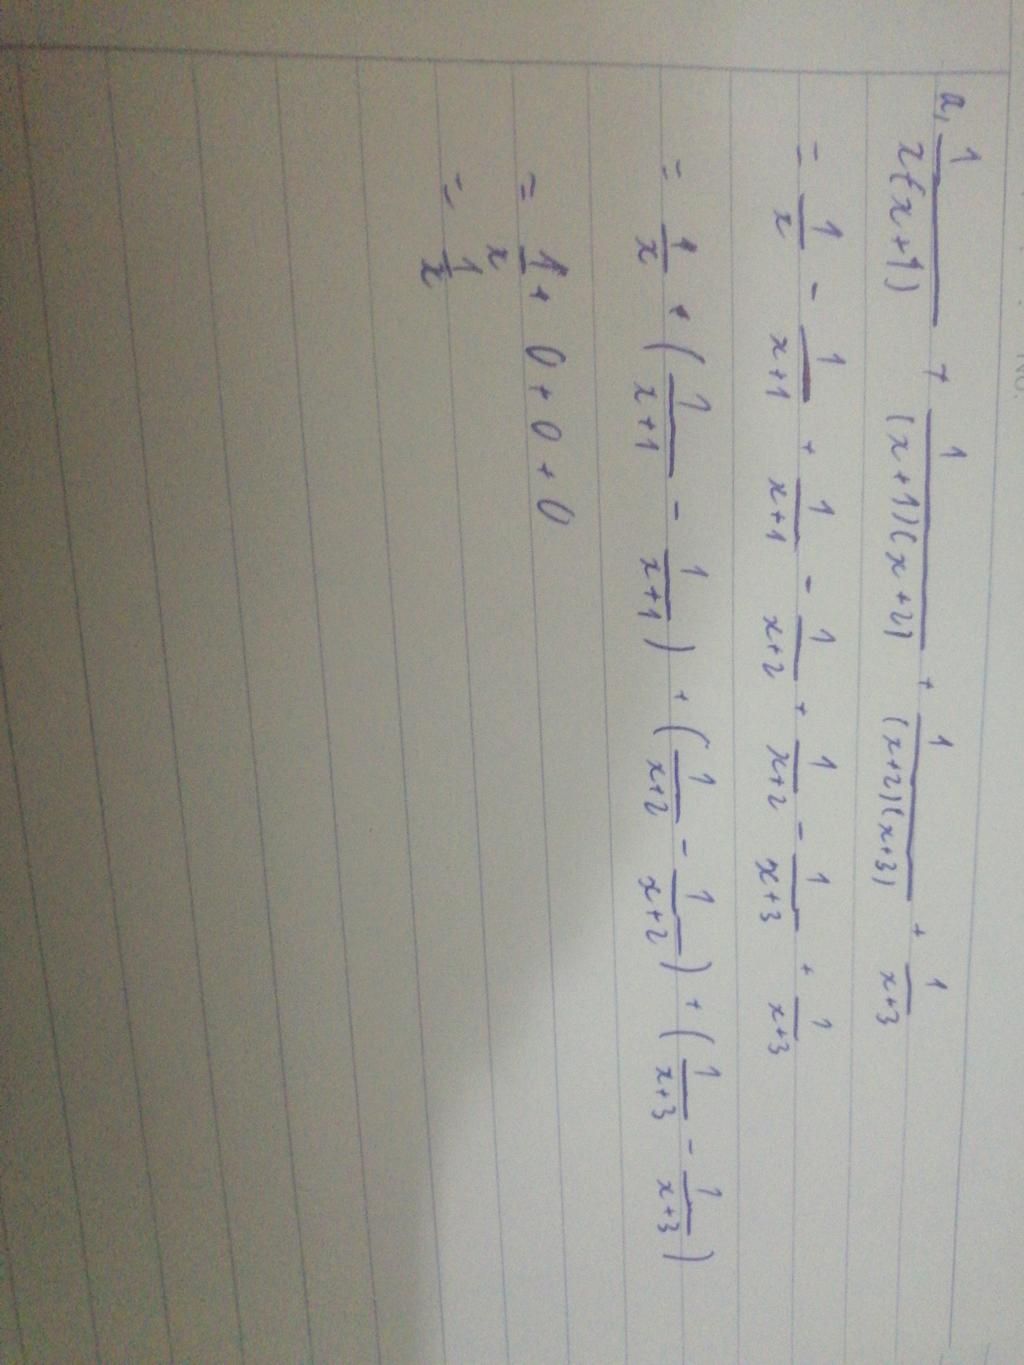 a, 1/x(x+1) + 1/(x+1)(x+2) + 1/(x+2)(x+3) + 1/x+3
= 1/x - 1/x+1 + 1/x+1 - 1/x+2 + 1/x+2 - 1/x+3 + 1/x+3
= 1/x + (1/x+1 - 1/x+1) + (1/x+2 - 1/x+2) + (1/x+3 - 1/x+3)
= 1/x + 0 + 0 + 0
= 1/x
No.